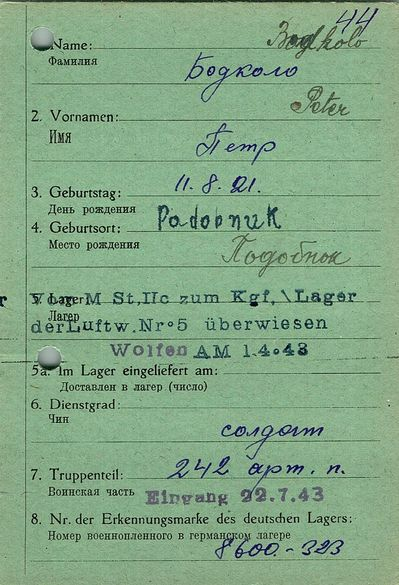 44
Name:
Bogkolo
Фамилия
Бодколо
2. Vornamen:
Peter
Имя
Петр
3. Geburtstag: 11.8.21.
День рождения
4. Geburtsort: Padobnuk
Место рождения
Подобнок
5. Lager
Vom M St, IIc zum Kgf, \ Lager
Лагер
der Luftw. Nr 5 überwiesen
Wolfen AM 1.4.43
5a. Im Lager eingeliefert am:
Доставлен в лагер (число)
6. Dienstgrad:
Чин
солдат
7. Truppenteil: 242 арт. п.
Воинская часть Eingang 22.7.43
8. Nr. der Erkennungsmarke des deutschen Lagers:
Номер военнопленного в германском лагере
8600.-323